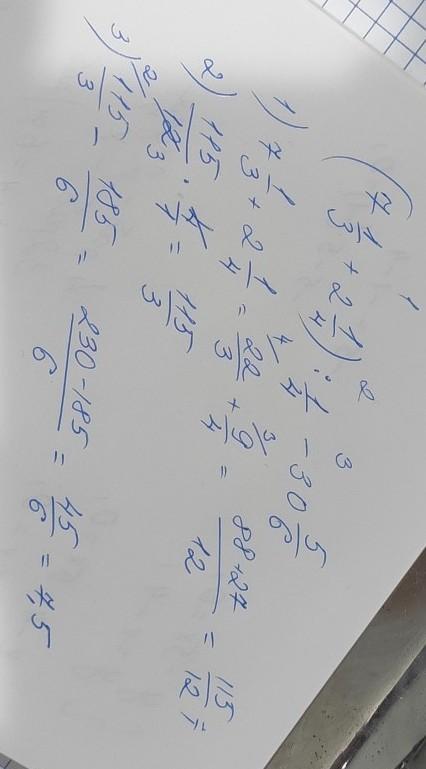 (7 1/3 + 2 1/4) : 1/4 - 30 5/6
1) 7 1/3 + 2 1/4 = 22/3 + 9/4 = 88+27/12 = 115/12
2) 115/12 · 4/1 = 115/3
3) 115/3 - 185/6 = 230-185/6 = 45/6 = 7,5